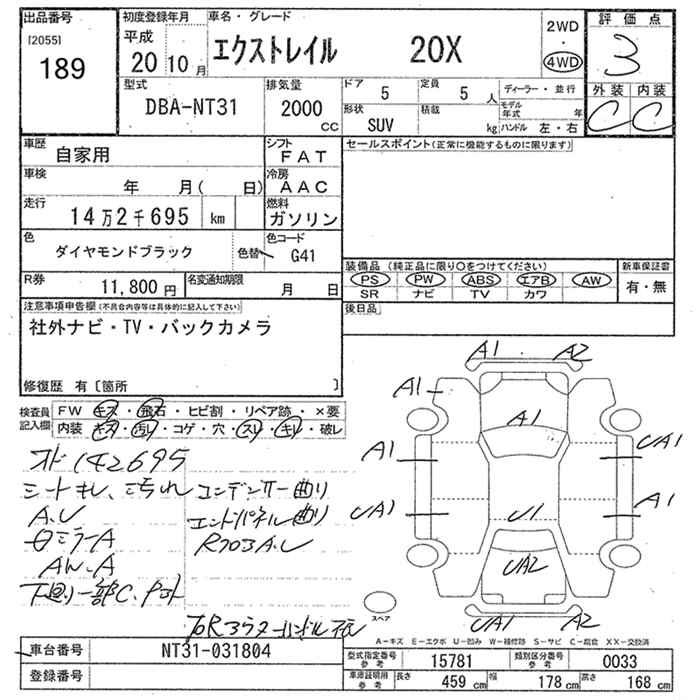 出品番号 初度登録年月 車名・グレード 2WD 評価点
[2055] 平成 ・ 3
189 20 10月 エクストレイル 20X 4WD 外装 内装
型式 排気量 ドア 定員 ディーラー・並行 C C
DBA-NT31 2000 5 5 人 モデル年式 年
cc 形状 積載 ハンドル 左・右
SUV kg
車歴 シフト セールスポイント(正常に機能するものに限ります)
自家用 FAT
車検 冷房
年 月( 日) AAC
走行 燃料
14万2千695 km ガソリン
色 色替 色コード
ダイヤモンドブラック G41
装備品 (純正品に限り○をつけてください) 新車保証書
R券 名変通知期限 PS PW ABS エアB AW 有・無
11,800円 月 日 SR ナビ TV カワ
注意事項申告欄(不具合内容等は具体的に記入して下さい) 後日品
社外ナビ・TV・バックカメラ
修復歴 有〔箇所 〕
検査員記入欄 FW キズ・飛石・ヒビ割・リペア跡・×要
内装 キズ・汚レ・コゲ・穴・スレ・キレ・破レ
A1 A2
A1
A1
A1 UA1
UA1 A1
U1
UA2
UA1 A2
オド142695
シートキレ、汚れ コンデンサー曲り
A.U エンドパネル曲り
ミラーA
AW.A
下廻り一部C
スペア
A-キズ E-エクボ U-凹み W-補修跡 S-サビ C-腐食 XX-交換済
車台番号 NT31-031804
登録番号
型式指定番号 参考 15781 類別区分番号 参考 0033
車庫証明用 参考 長さ 459 cm 幅 178 cm 高さ 168 cm